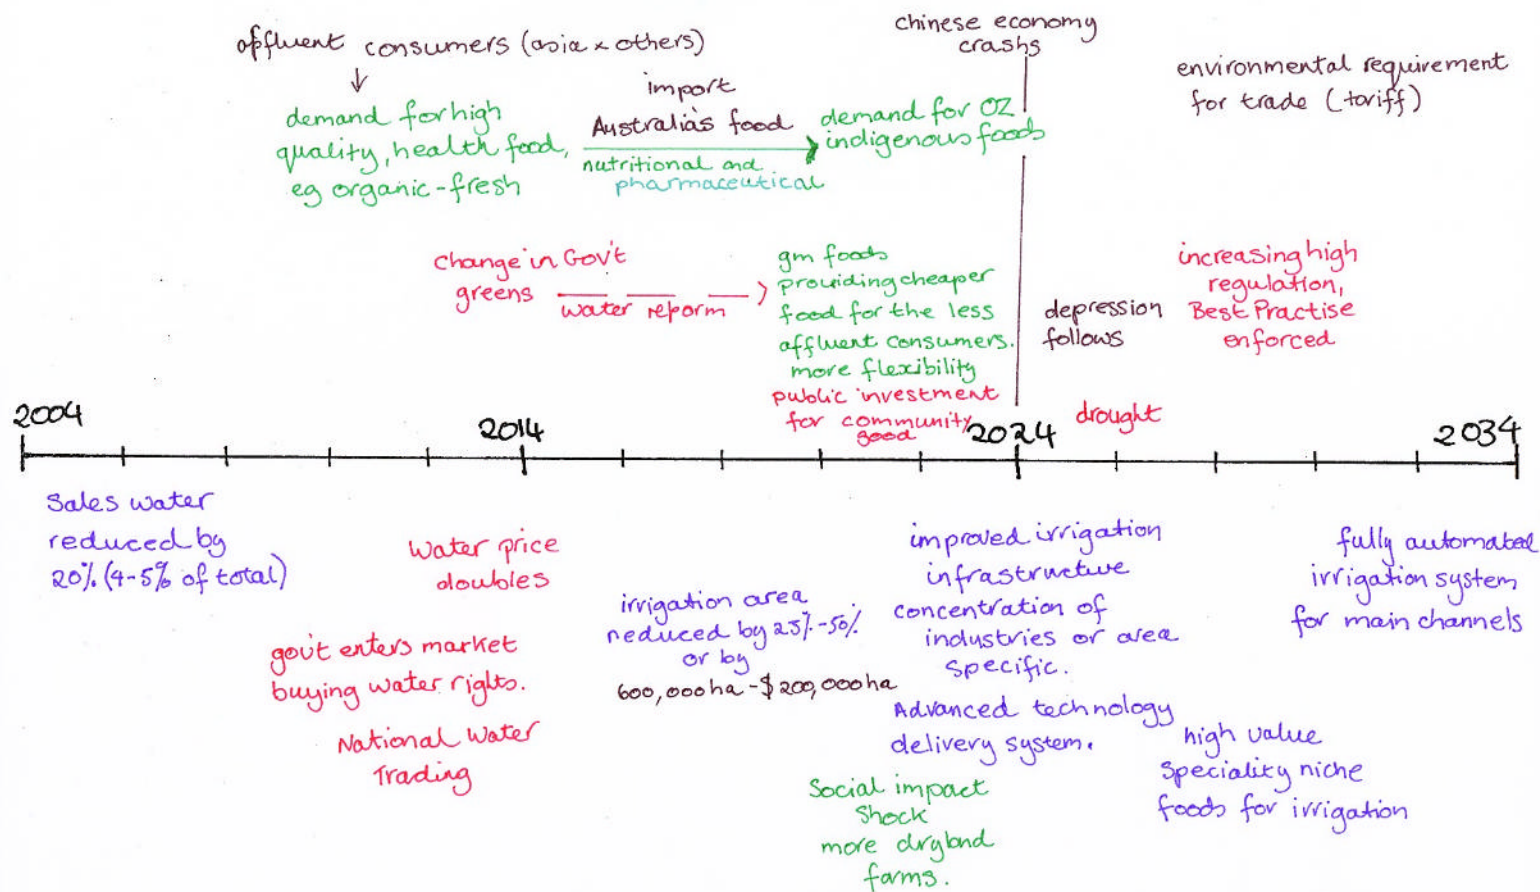 affluent consumers (asia & others)
demand for high
quality, health food,
eg organic-fresh
import
Australia's food
nutritional and
pharmaceutical
demand for OZ
indigenous foods
chinese economy
crashs
environmental requirement
for trade (tariff)
change in Gov't
greens
water reform
gm foods
providing cheaper
food for the less
affluent consumers.
more flexibility
public investment
for community
good
depression
follows
increasing high
regulation,
Best Practise
enforced
drought
2004
2014
2024
2034
Sales water
reduced by
20% (4-5% of total)
Water price
doubles
gov't enters market
buying water rights.
National Water
Trading
irrigation area
reduced by 25%-50%
or by
600,000ha-$200,000ha
improved irrigation
infrastructure
concentration of
industries or area
specific.
Advanced technology
delivery system.
Social impact
Shock
more dryland
farms.
high value
Speciality niche
foods for irrigation
fully automated
irrigation system
for main channels